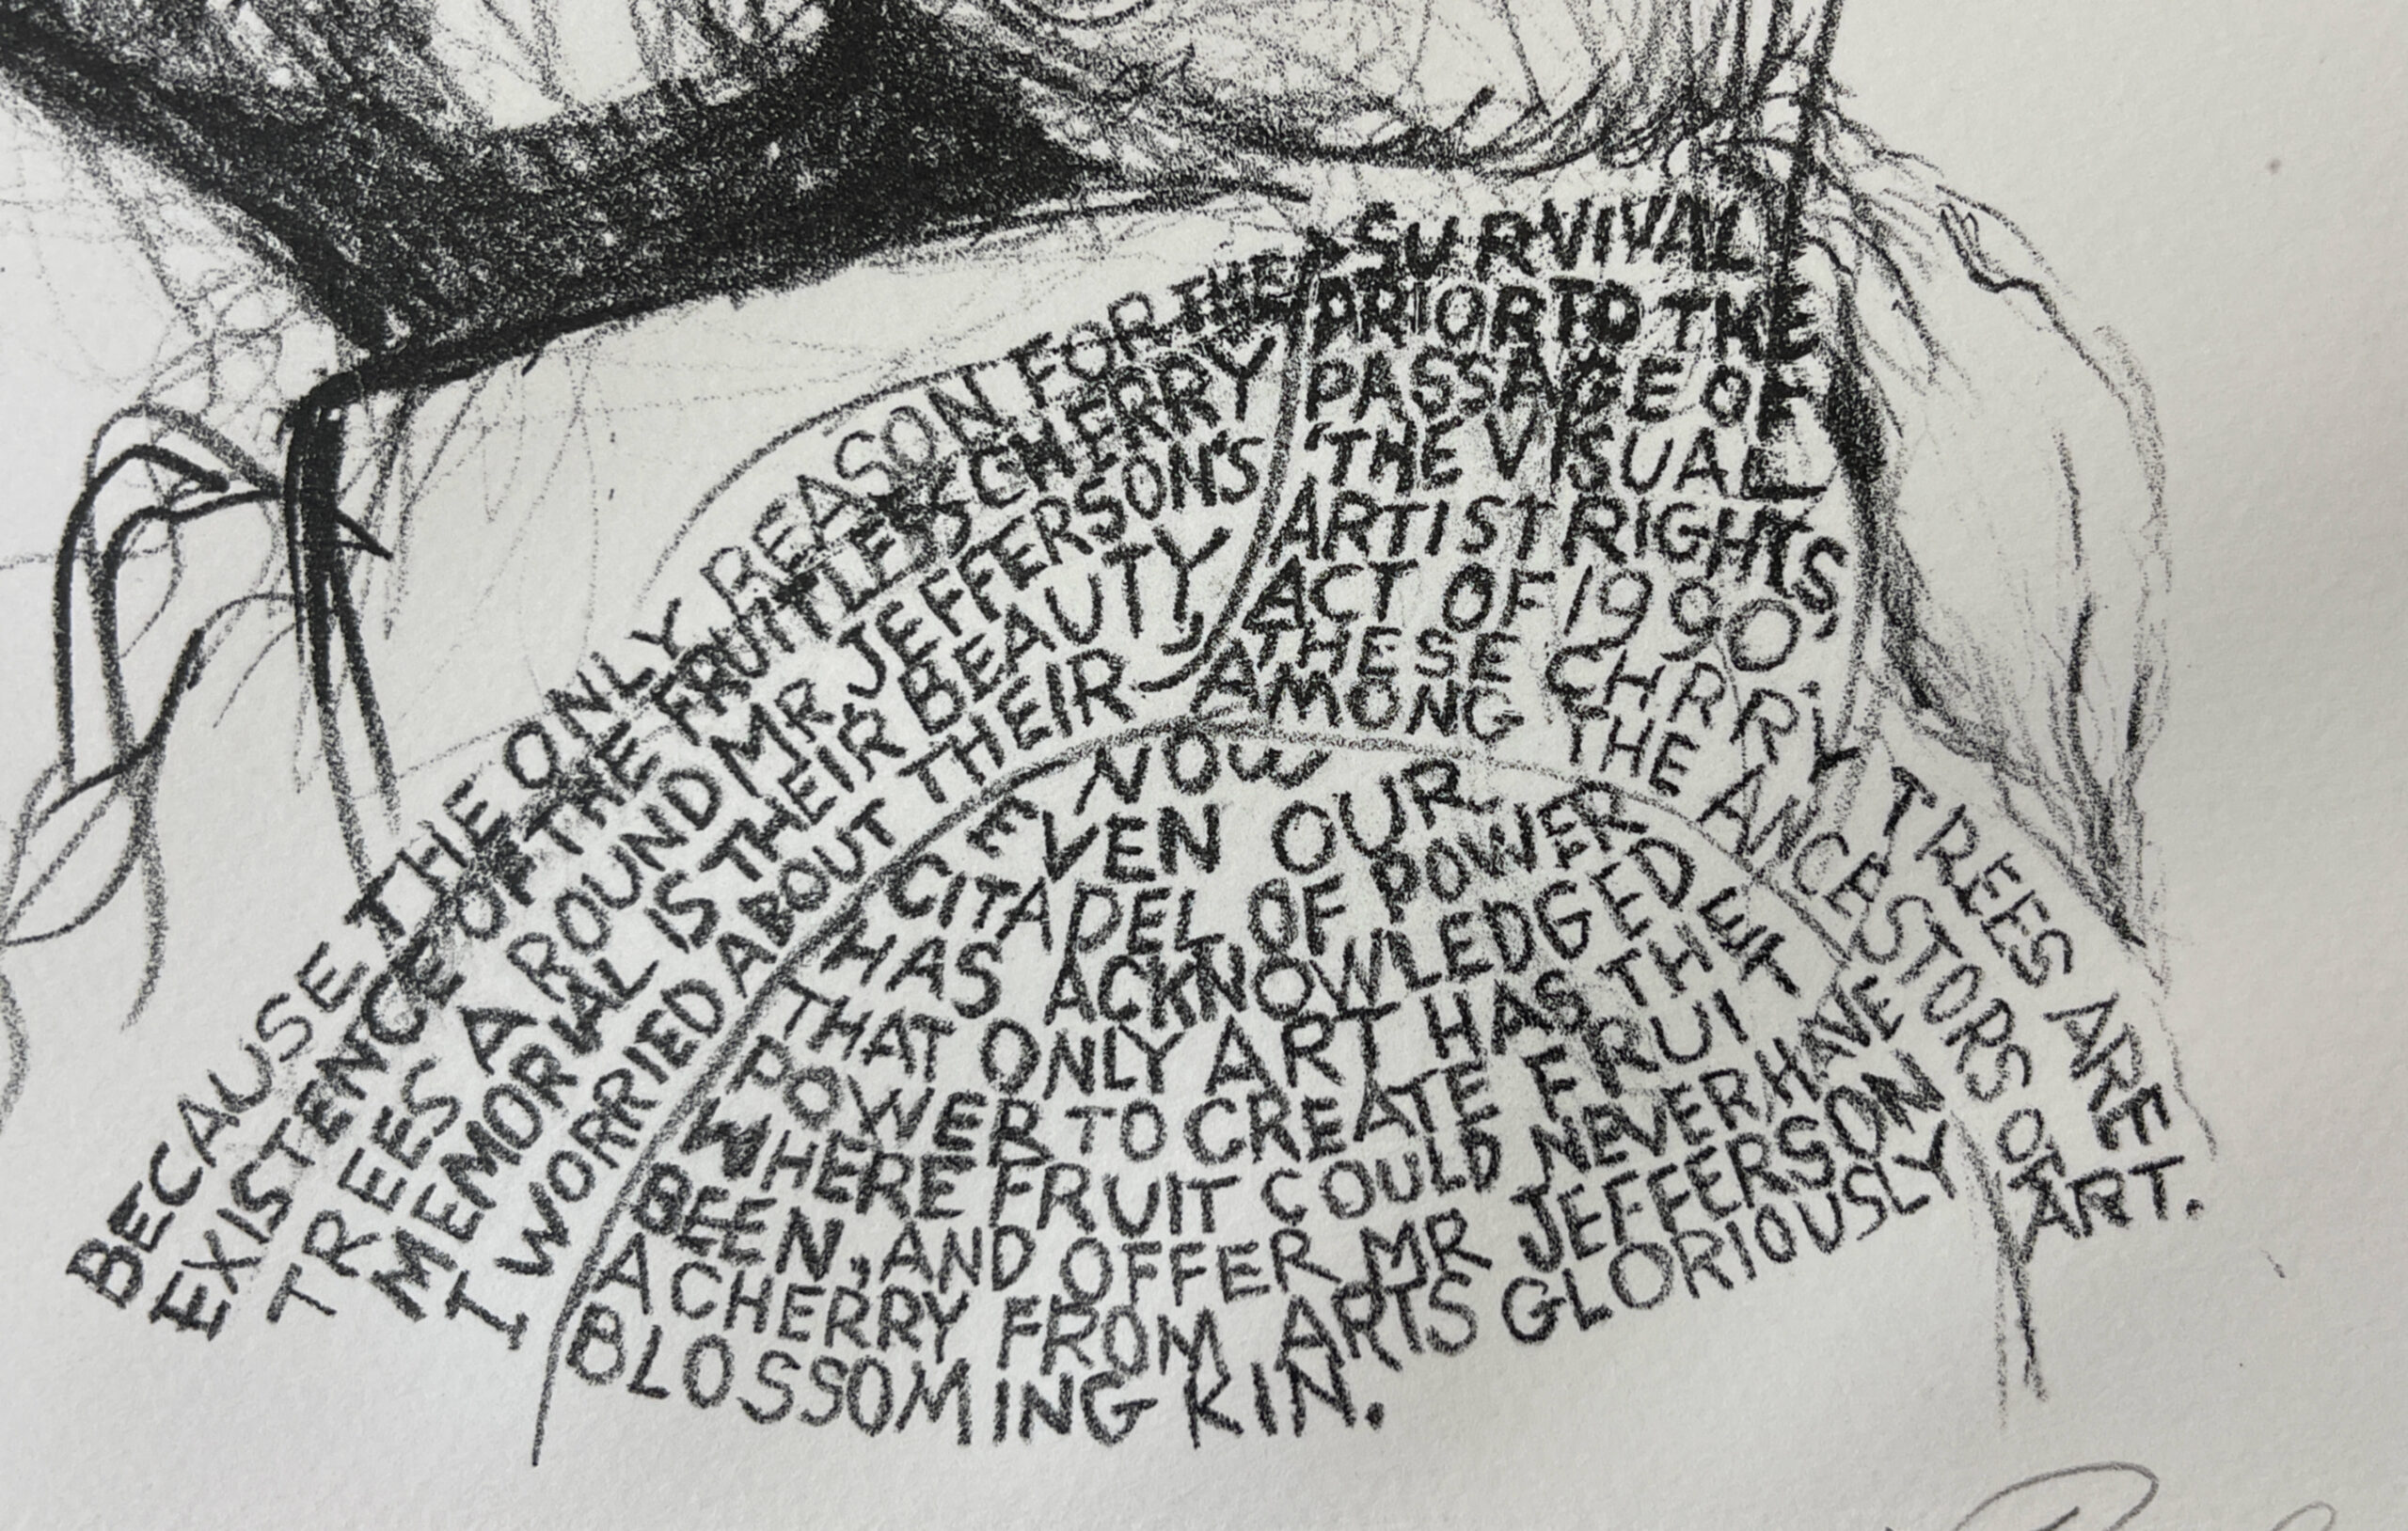 BECAUSE THE ONLY REASON FOR THE
EXISTENCE OF THE FRUITLESS CHERRY
TREES AROUND MR JEFFERSON'S
MEMORIAL IS THEIR BEAUTY,
I WORRIED ABOUT THEIR
SURVIVAL
PRIOR TO THE
PASSAGE OF
'THE VISUAL
ARTIST RIGHTS
ACT OF 1990'.
THESE CHRRY TREES ARE
AMONG THE ANCESTORS OF
ART.
NOW
EVEN OUR
CITADEL OF POWER
HAS ACKNOWLEDGED
THAT ONLY ART HAS THE
POWER TO CREATE FRUIT
WHERE FRUIT COULD NEVER HAVE
BEEN, AND OFFER MR JEFFERSON
A CHERRY FROM ARTS GLORIOUSLY
BLOSSOMING KIN.